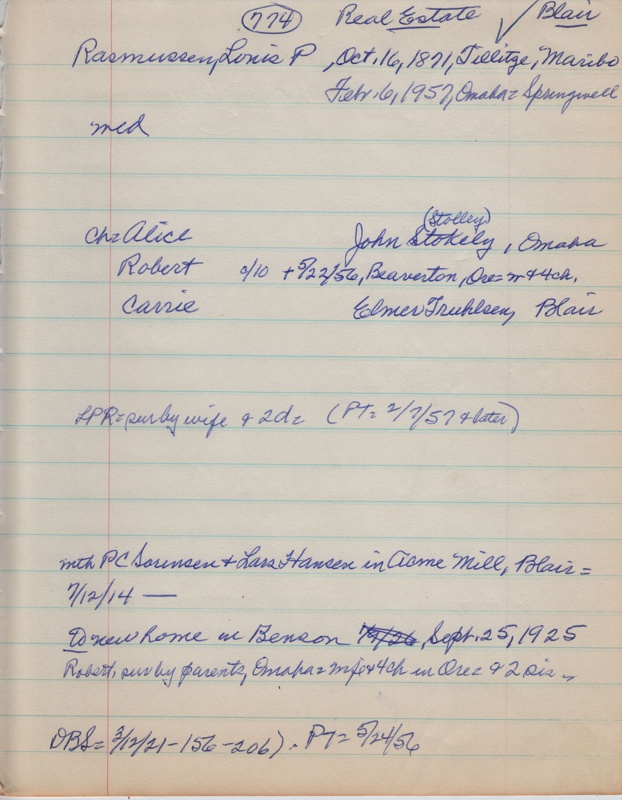 774 Real Estate ✓ Blair
Rasmussen, Louis P , Oct. 16, 1871, Tillitze, Maribo
Febr. 6, 1957, Omaha = Springwell
med
(Stolley)
ch = Alice John Stokely, Omaha
Robert c/10 + 5/22/56, Beaverton, Ore = m & 4ch.
Carrie Elmer Truhlsen, Blair
LPR = sur by wife & 2d = (PT = 2/7/57 & later)
mth PC Sorensen & Lars Hansen in Acme Mill, Blair =
7/12/14 —
To new home in Benson 7/9/26, Sept. 25, 1925
Robert, sur by parents, Omaha = & 4ch in Ore = & 2 sis
DBS = 3/12/21 - 156 - 206) . PT = 5/24/56